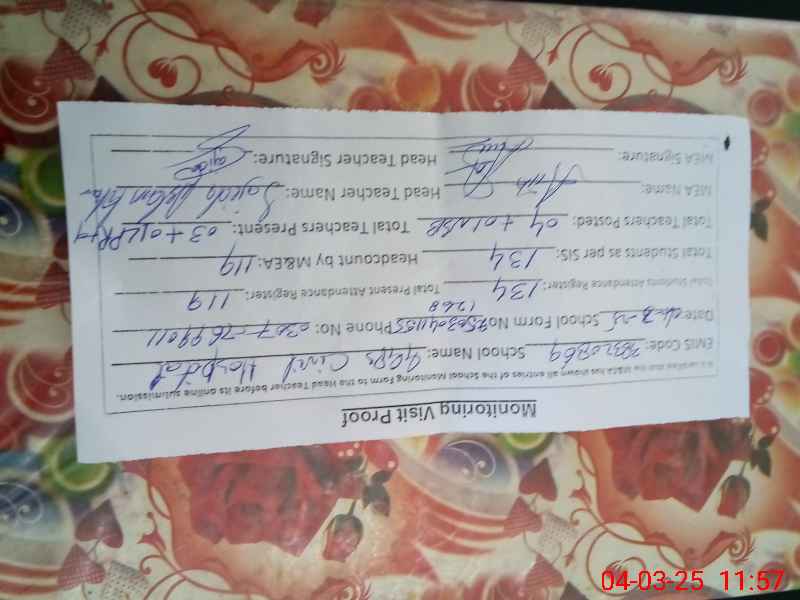 Monitoring Visit Proof
It is certified that the MEA has shown all entries of the School Monitoring Form to the Head Teacher before its online submission.
EMIS Code: School Name: GGPS Civil Hospital
Date: School Form No: Phone No: 0307-7699011
1268
Total Students Attendance Register: 134 Total Present Attendance Register: 119
Total Students as per SIS: 134 Headcount by M&EA: 119
Total Teachers Posted: 04 + Total Teachers Present: 03 +
MEA Name: Head Teacher Name: Sajida
MEA Signature: Head Teacher Signature: Sajida
04-03-25 11:57